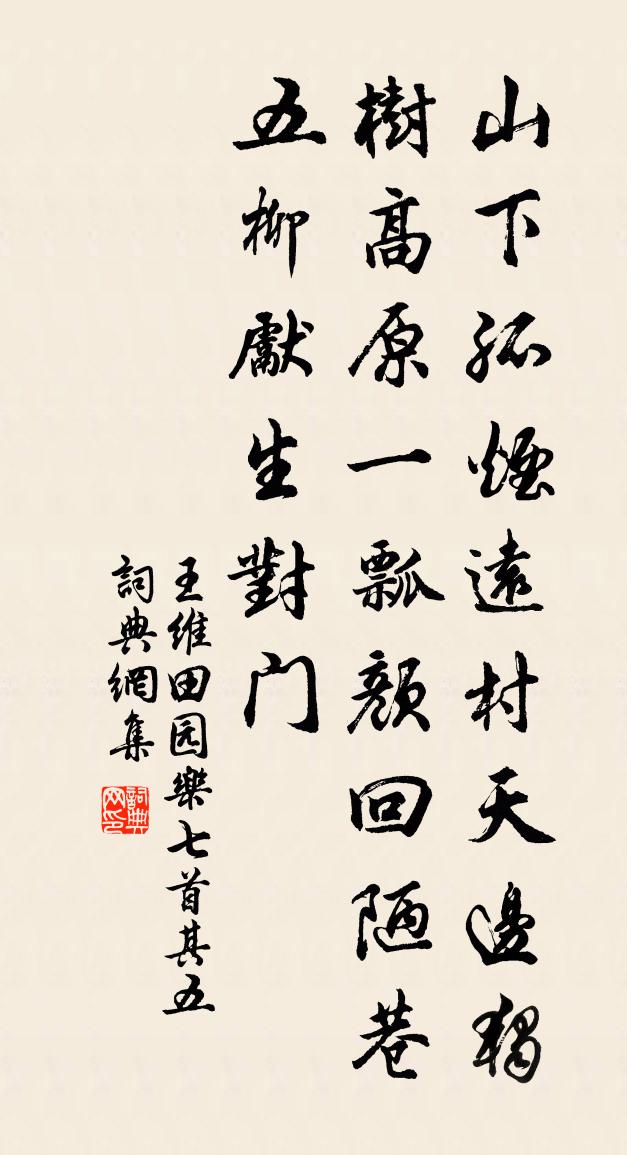 山下孤煙遠村天邊獨
樹髙原一瓢顏回陋巷
五柳獻生對门
王維田园樂七首其五
詞典網集
詞典
网印